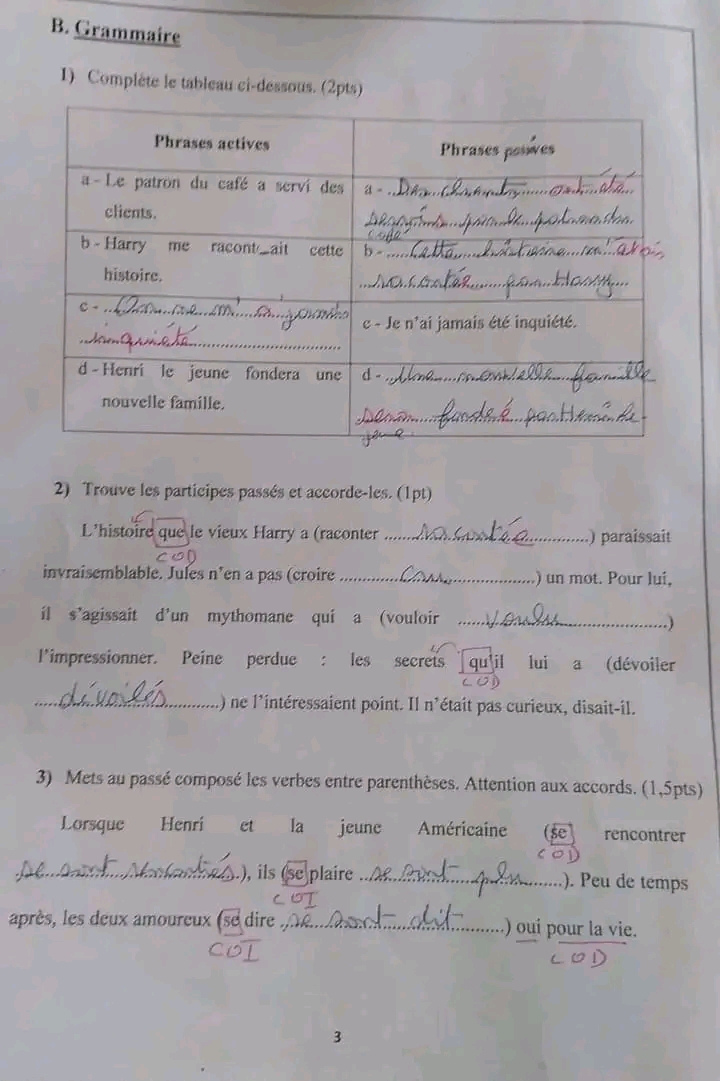 B. Grammaire
1) Complète le tableau ci-dessous. (2pts)
Phrases actives
Phrases passives
a - Le patron du café a servi des
clients.
a - Des clients ont été
servis par le patron du
café
b - Harry me racontait cette
histoire.
b - Cette histoire m'était
racontée par Harry
c - On ne m'a jamais
inquiété
c - Je n'ai jamais été inquiété.
d - Henri le jeune fondera une
nouvelle famille.
d - Une nouvelle famille
sera fondée par Henri le
jeune
2) Trouve les participes passés et accorde-les. (1pt)
L'histoire que le vieux Harry a (raconter racontée) paraissait
COD
invraisemblable. Jules n'en a pas (croire cru) un mot. Pour lui,
il s'agissait d'un mythomane qui a (vouloir voulu)
l'impressionner. Peine perdue : les secrets qu'il lui a (dévoiler
COD
dévoilés) ne l'intéressaient point. Il n'était pas curieux, disait-il.
3) Mets au passé composé les verbes entre parenthèses. Attention aux accords. (1,5pts)
Lorsque Henri et la jeune Américaine (se rencontrer
COD
se sont rencontrés), ils (se plaire se sont plu). Peu de temps
COI
après, les deux amoureux (se dire se sont dit) oui pour la vie.
COI COD
3